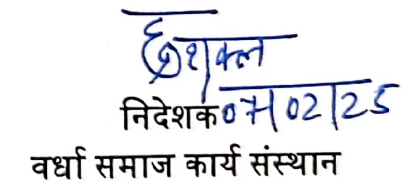 निदेशक 07/02/25
वर्धा समाज कार्य संस्थान